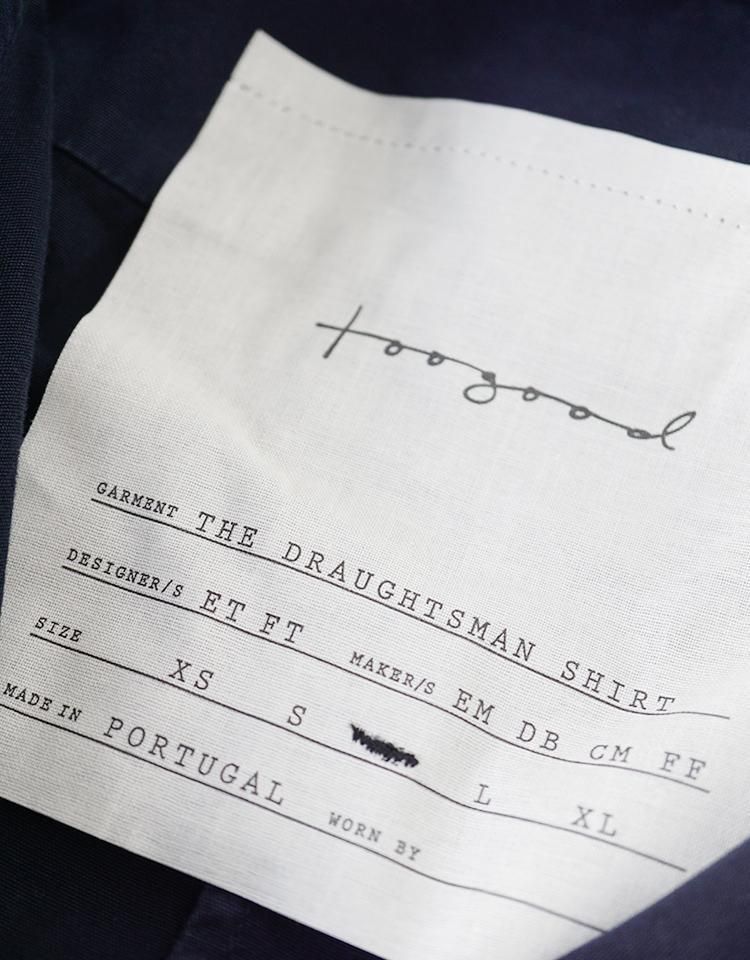 toogood
GARMENT THE DRAUGHTSMAN SHIRT
DESIGNER/S ET FT MAKER/S EM DB CM FF
SIZE XS S L XL
MADE IN PORTUGAL WORN BY